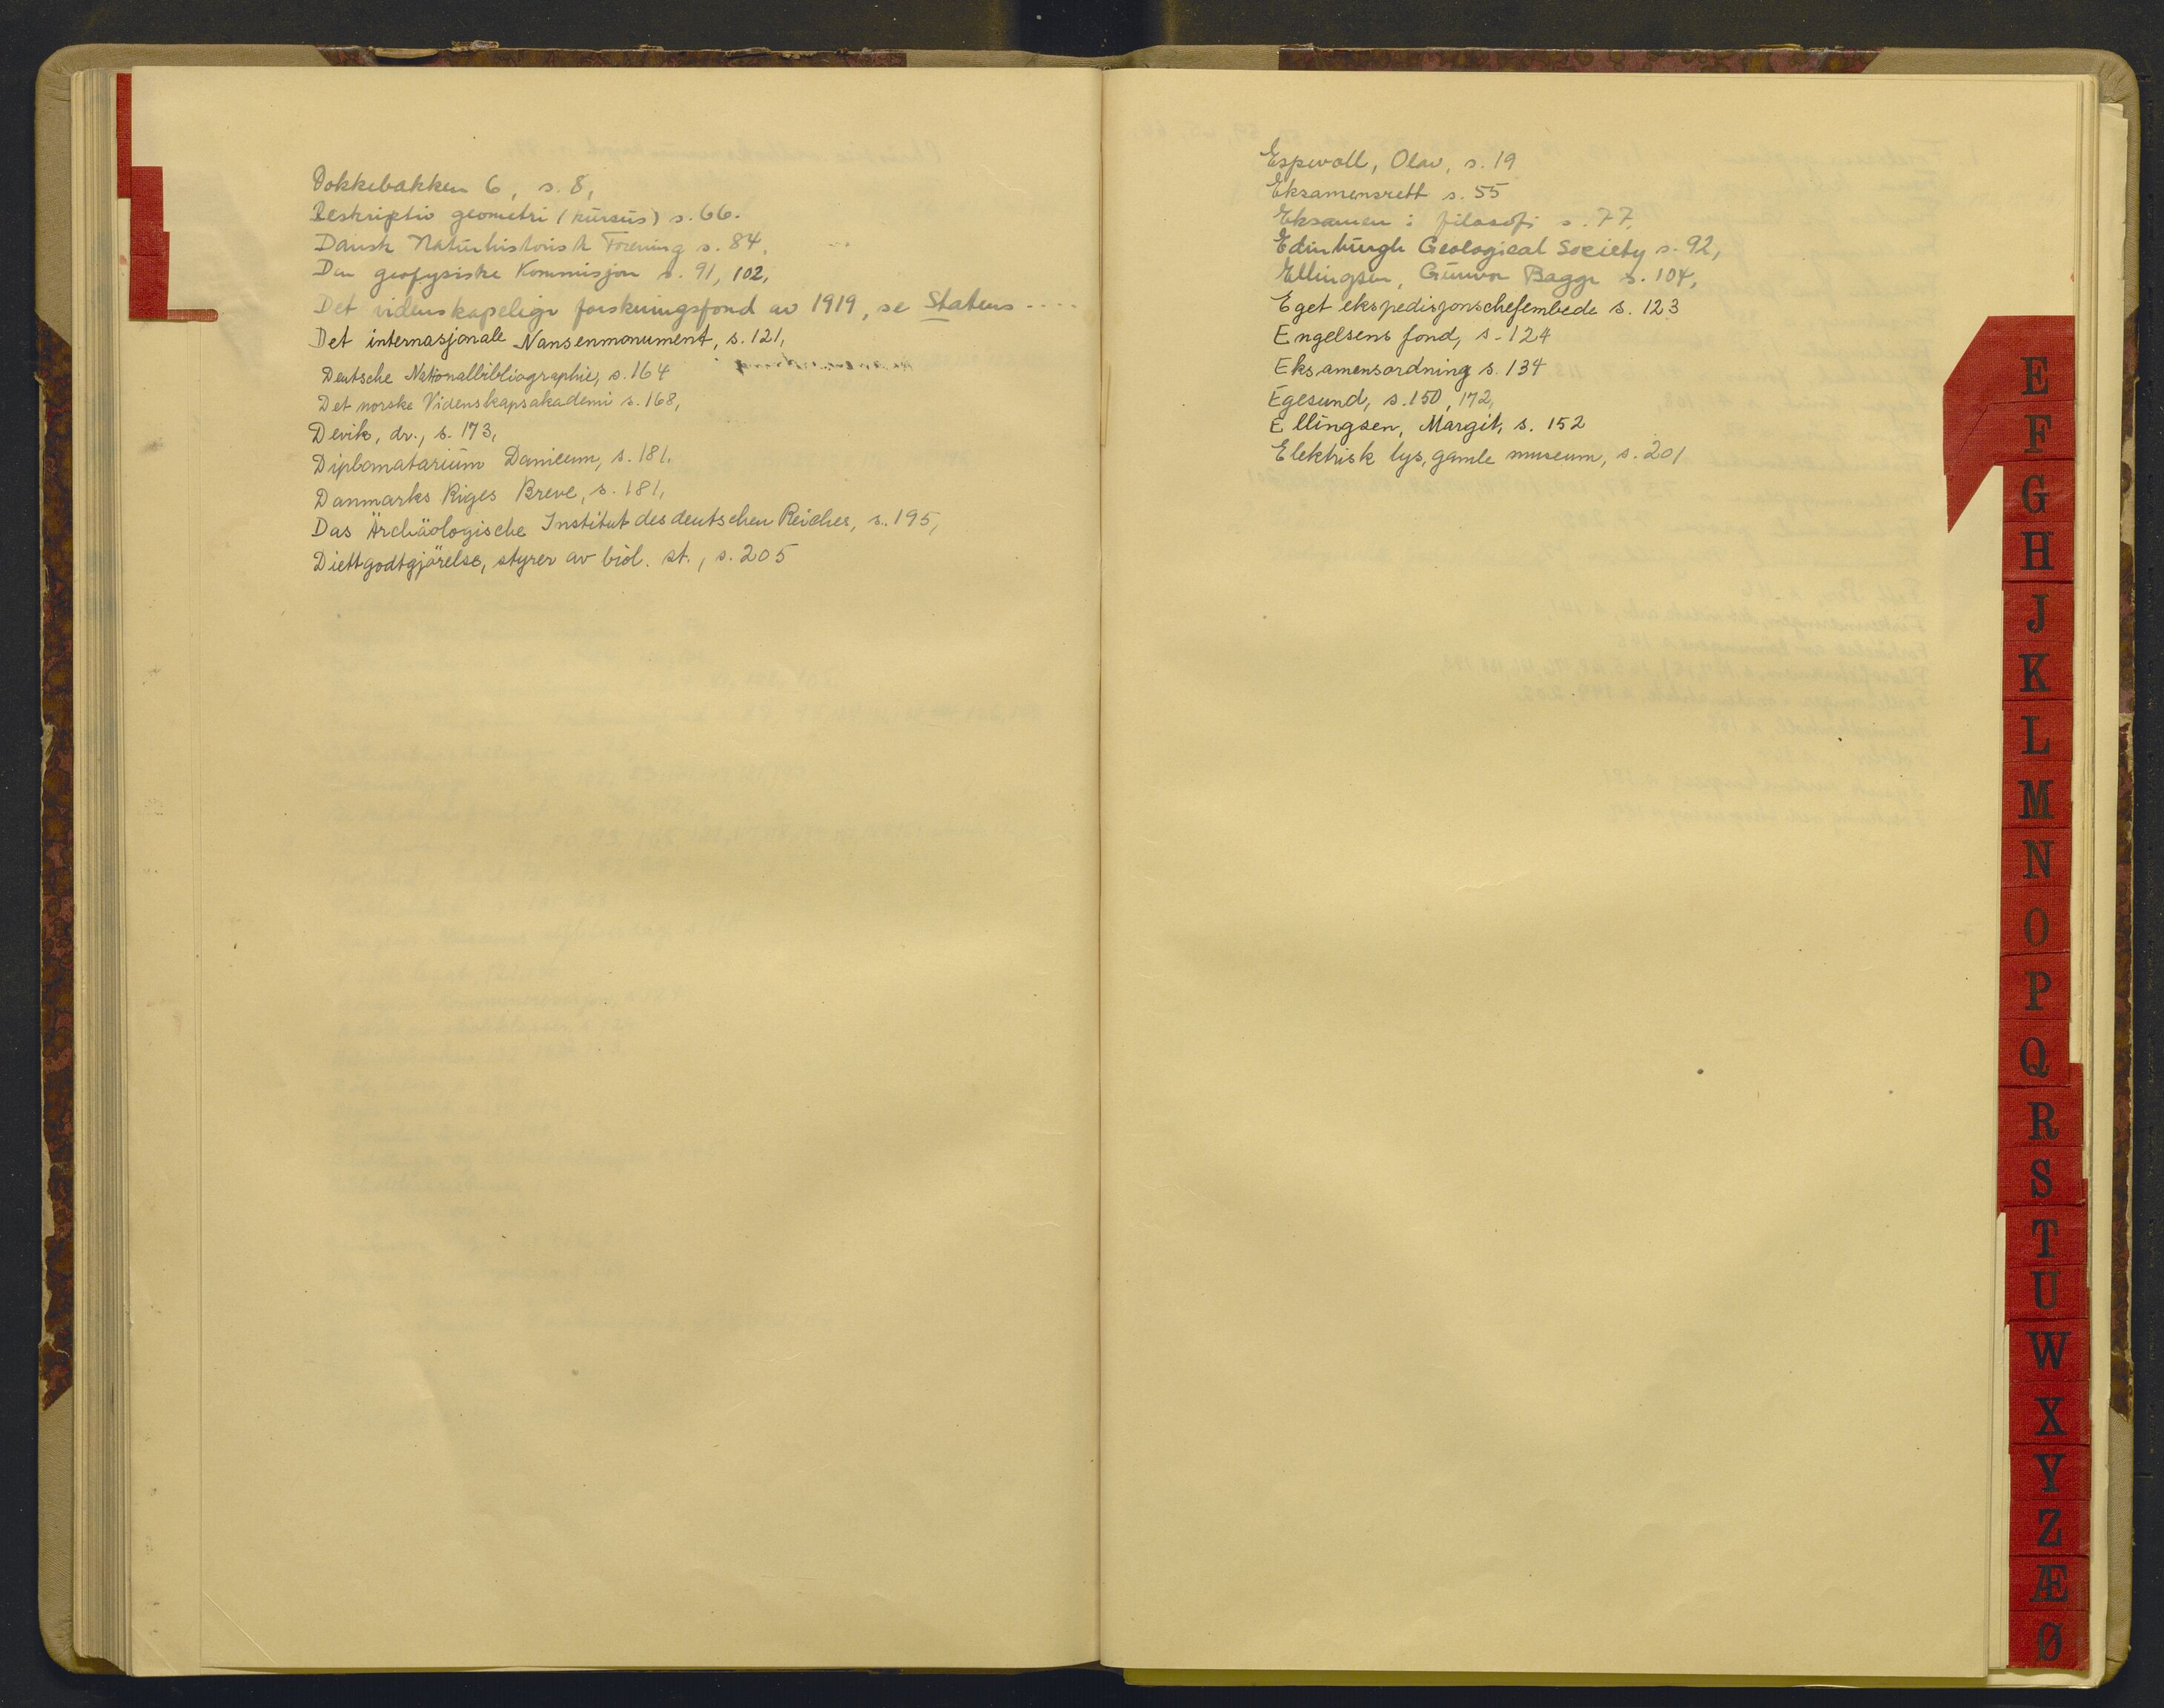 Dokkebakken 6, s. 8,
Deskriptiv geometri (kursus) s. 66.
Dansk Naturhistorisk Forening s. 84,
Den geofysiske Kommisjon s. 91, 102,
Det videnskapelige forskningsfond av 1919, se Statens ----
Det internasjonale Nansenmonument, s. 121,
Deutsche Nationalbibliographie, s. 164
Det norske Videnskapsakademi s. 168,
Devik, dr., s. 173,
Diplomatarium Danicum, s. 181.
Danmarks Riges Breve, s. 181,
Das Ärchäologische Institut des deutschen Reiches, s. 195,
Diettgodtgjörelse, styrer av biol. st., s. 205
Espevoll, Olav, s. 19
Eksamensrett s. 55
Eksamen i filosofi s. 77,
Edinburgh Geological Society s. 92,
Ellingsen, Gunvor Bagge s. 104,
Eget ekspedisjonschefembede s. 123
Engelsens fond, s. 124
Eksamensordning s. 134
Egesund, s. 150, 172,
Ellingsen, Margit, s. 152
Elektrisk lys, gamle museum, s. 201
E
F
G
H
J
K
L
M
N
O
P
Q
R
S
T
U
W
X
Y
Z
Æ
Ø